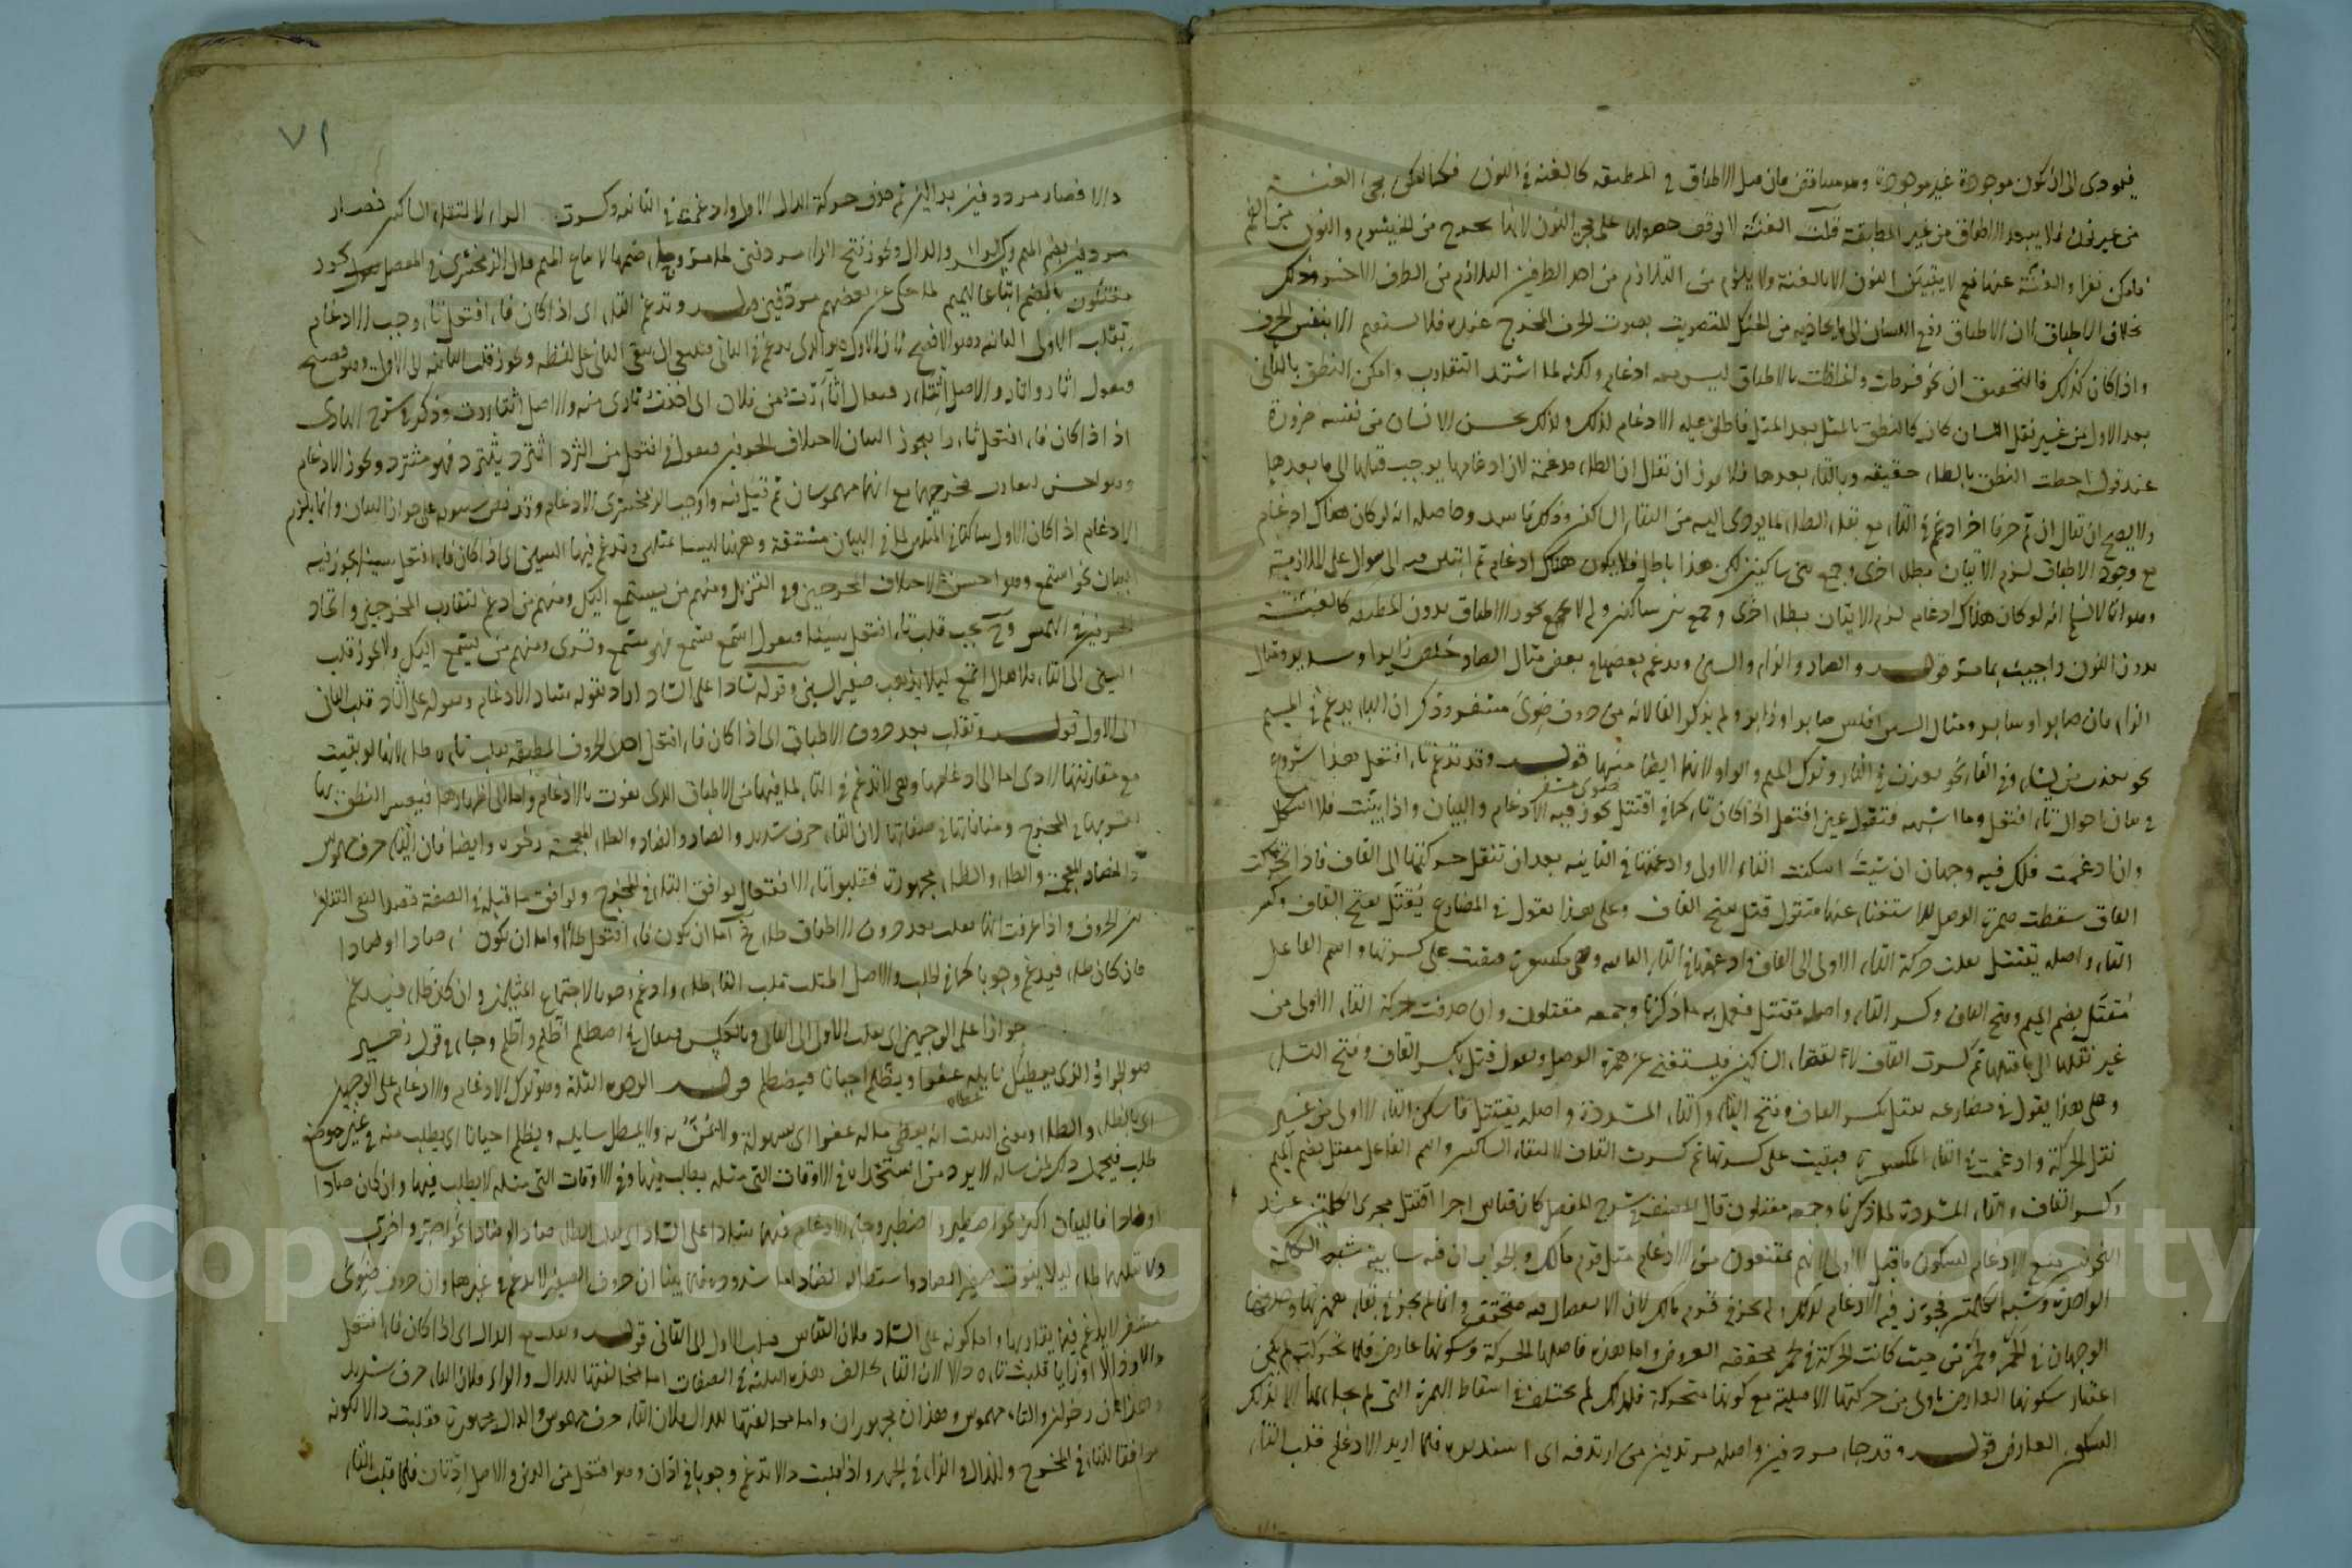 فيودى الى ان تكون موجودة غير موجودة وهو متناقض فان قيل الاطباق فى المطبقه كالغنة فى النون فكما يمكن مجئ الغنة
من غير نون فلا يبعد الاطباق من غير المطبقة قلت الغنة لا يوقف حصولها على مجئ النون لانها تخرج من الخيشوم والنون من الفم
فامكن انفراد الغنة عنها نعم لا يتبين النون الا بالغنة ولا يلزم من التلازم من احد الطرفين التلازم من الطرف الاخر وذلك
بخلاف الاطباق لان الاطباق رفع اللسان الى ما يحاذيه من الحنك للتصويت بصوت الحرف المخرج عنده فلا يستقيم الا بنفس الحرف
واذا كان كذلك فالتحقيق ان نحو فرطت واغلظت بالاطباق ليس معه ادغام ولكنه لما اشتد التقارب وامكن النطق بالثانى
بعد الاول من غير نقل اللسان كان كالنطق بالمثل بعد المثل فاطلق عليه الادغام لذلك ولذلك يحس الانسان من نفسه ضرورة
عند قوله احطت النطق بالطاء حقيقه وبالتاء بعدها فلا يجوز ان يقال ان الطاء مدغمة لان ادغامها يوجب قلبها الى ما بعدها
ولا يصح ان يقال ان ثم حرفا اخر ادغم فى التاء مع بقاء الطاء لما يودى اليه من التقاء الساكنين وذلك فاسد وحاصله انه لو كان هناك ادغام
مع وجود الاطباق لزم الاتيان بطاء اخرى وجمع بين ساكنين لكن هذا باطل فلا يكون هناك ادغام ثم انتقل منه الى سوال على الملازمة
وهو انا لا نسلم انه لو كان هناك ادغام لزم الاتيان بطاء اخرى وجمع بين ساكنين ولم لا يجوز الاطباق بدون المطبقه كالغنة
بدون النون واجيب بما مر قوله والصاد والزاى والسين يدغم بعضها فى بعض مثال الصاد خلص زايرا وسايرا ومثال
الزاى فاز صابر او سابر ومثال السين افلس صابر او زابر ولم يذكر الفا لانه من حروف ضوى مشفر وذكر ان الباء يدغم فى الميم
نحو يعذب من يشاء وفى الفاء نحو يعزب فى الفاء وترك الميم والواو لانهما ايضا منها قوله وقد تدغم تاء افتعل هذا شروع
ضوى مشفر
فى بيان احوال تاء افتعل وما اشبهه فتقول عين افتعل اذا كان تاء كما فى اقتتل يجوز فيه الادغام والبيان واذا بينت فلا اشكال
وان ادغمت فلك فيه وجهان ان شئت اسكنت التاء الاولى وادغمتها فى الثانيه بعد ان تنقل حركتها الى القاف فاذا تحركت
القاف سقطت همزة الوصل للاستغناء عنها فتقول قتل بفتح القاف وعلى هذا يقول فى المضارع يقتل بفتح القاف وكسر
التاء واصله يقتتل نقلت حركة التاء الاولى الى القاف وادغمتها فى التاء الثانيه وهى مكسورة فبقيت على كسرتها واسم الفاعل
مقتل بضم الميم وفتح القاف وكسر التاء واصله مقتتل فعمل به ما ذكرنا وجمعه مقتلون وان حذفت حركة التاء الاولى من
غير نقلها الى ما قبلها ثم كسرت القاف لالتقاء الساكنين فيستغنى عن همزة الوصل وتقول قتل بكسر القاف وفتح التاء
وعلى هذا يقول فى مضارعه يقتل بكسر القاف وفتح الياء والتاء المشددة واصله يقتتل فاسكن التاء الاولى من غير
نقل الحركة وادغمت فى التاء المكسورة فبقيت على كسرتها ثم كسرت القاف لالتقاء الساكنين واسم الفاعل مقتل بضم الميم
وكسر القاف والتاء المشددة لما ذكرنا وجمعه مقتلون قال المصنف فى شرح المفصل كان قياس اجراء اقتتل مجرى الكلمتين عند
النحويين يمنع الادغام لسكون ما قبل الاول لانهم يمتنعون من الادغام مثل قوم مالك والجواب ان فيه شايبة شبه الكلمة
الواحدة وشبه الكلمتين فجوز فيه الادغام لذلك ولم يجز فى قوم مالك لان الانفصال فيه متحقق وانما لم يجز فى بقاء همزتها وحذفها
الوجهان فى الحمر ولحمر من حيث كانت الحركة فى لحمر محققه العروض واما هذه فاصلها الحركة وسكونها عارض فلما تحركت لم يكن
اعتبار سكونها العارض باولى من حركتها الاصلية مع كونها متحركة فلذلك لم يختلف فى اسقاط الهمزة التى لم يجاء بها الا لذلك
السكون العارض قوله وقد جاء مردفين واصله مرتدفين من ارتدفه اى استدبره فلما اريد الادغام قلبت التاء
٧١
دالا فصار مرددفين بدالين ثم حذف حركة الدال الاولى وادغمت فى الثانيه وكسرت الراء لالتقاء الساكنين فصار
مردفين بضم الميم وكسر الراء والدال ويجوز فتح الراء مردفين لما مر وجاء ضمها لاتباع الميم قال الزمخشرى فى المفصل يجوز
مقتلون بالضم اتباعا للميم لما حكى عن بعضهم مردفين قوله وتدغم الثاء اى اذا كان فاء افتعل ثاء وجب الادغام
بقلب الاولى الى الثانيه وهو الافصح لان الاول هو الذى يدغم فى الثانى فينبغى ان يبقى الثانى على لفظه ويجوز قلب الثانيه الى الاول وهو فصيح
فيقول اثار واتار والاصل اثتار ويقال اثأرت من فلان اى اخذت ثارى منه والاصل اثتارت وذكر فى شرح الهادى
اذا كان فاء افتعل ثاء يجوز البيان لاختلاف الحرفين فيقول فى افتعل من الثرد اثترد يثترد فهو مثترد ويجوز الادغام
وهو احسن لتقارب مخرجيهما مع انهما مهموسان ثم قيل فيه واوجب الزمخشرى الادغام وقد نص سيبويه على جواز البيان وانما يلزم
الادغام اذا كان الاول ساكنا فى المثلين لما فى البيان مشقة وههنا ليسا مثلين وتدغم فيها السين اى اذا كان فاء افتعل سينا يجوز فيه
البيان نحو استمع وهو احسن لاختلاف المخرجين وفى التنزيل ومنهم من يستمع اليك ومنهم من ادغم لتقارب المخرجين واتحاد
الحرفين فى الهمس وح يجب قلب تاء افتعل سينا فيقول اسمع يسمع فهو مسمع وقرى ومنهم من يسمع اليك ولا يجوز قلب
السين الى التاء فلا يقال اتمع ليلا يذهب صفير السين وقوله شاذا على الشاذ اراد بقوله شاذ الادغام وبقوله على الشاذ قلب الثانى
الى الاول قوله وتقلب بعد حروف الاطباق اى اذا كان فاء افتعل احد الحروف المطبقه يقلب تاءه طاء لانها لو بقيت
مع مقارنتها ادى اما الى ادغامها وهى لا تدغم فى التاء لما فيها من الاطباق الذى يفوت بالادغام واما الى اظهارها فيعسر النطق بها
لقربها فى المخرج ومنافاتها فى صفاتها لان التاء حرف شديد والصاد والضاد والطاء المعجمة رخوه وايضا فان التاء حرف مهموس
والضاد المعجمة والطاء والظاء مجهورة فقلبوا تاء الافتعال ليوافق التاء فى المخرج ولوافق ما قبله فى الصفة قصدا لنفى التنافر
بين الحروف واذا عرفت انها يقلب بعد حروف الاطباق طاء فح اما ان يكون فاء افتعل طاء او اما ان يكون ظاء صادا او ضادا
فان كان طاء فيدغم وجوبا كما فى اطلب والاصل اطتلب قلبت التاء طاء وادغم وجوبا لاجتماع المثلين وان كان ظاء فيدغم
جوازا على الوجهين اى بقلب الاول الى الثانى وبالعكس فيقال فى اضطلم اطلم واظلم وجاء فى قول زهير
هو الجواد الذى يعطيك نايله عفوا ويظلم احيانا فيضطلم قوله الوجوه الثلثة وهو ترك الادغام والادغام على الوجهين
اى بالطاء والظاء ومعنى البيت انه يعطى ماله عفوا اى بسهولة ولا يمن به ولا يمطل سايليه ويظلم احيانا اى يطلب منه فى غير موضع
طلب فيحمل ذلك لمن ساله لا يرد من استجداه فى الاوقات التى مثله يطلب فيها وفى الاوقات التى مثله لا يطلب فيها وان كان صادا
او ضادا فالبيان اكثر نحو اصطبر واضطبر وجاء الادغام فيهما شاذا على الشاذ اى بقلب الطاء صادا او ضادا نحو اصبر واضرب
ولا تقلبهما طاء ليلا يفوت صفير الصاد واستطالة الضاد اما شذوذه فلما بينا ان حروف الصفير لا تدغم فى غيرها وان حروف ضوى
مشفر لا يدغم فيما يقاربها واما كونه على الشاذ فلان القياس قلب الاول الى الثانى قوله ويقلب مع الدال اى اذا كان فاء افتعل
دالا او ذالا او زايا قلبت تاءه دالا لان التاء يخالف هذه الثلثة فى الصفات اما مخالفتها للدال والزاء فلان التاء حرف شديد
وهذان رخوان والتاء مهموس وهذان مجهوران واما مخالفتها للدال فلان التاء حرف مهموس والدال مجهورة فقلبت دالا لكونه
موافقا للتاء فى المخرج وللذال والزاء فى الجهر واذا قلبت دالا تدغم وجوبا فى ادان وهو افتعل من الدين والاصل ادتان فلما قلبت التاء